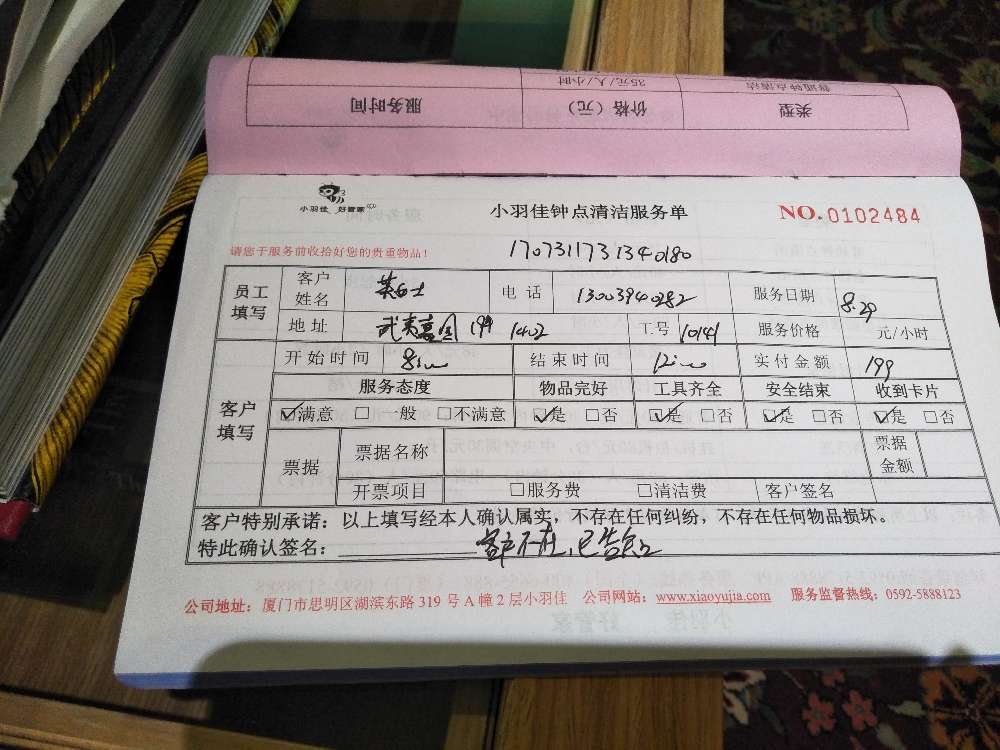 普通钟点清洁 35元/人/小时
类型 价格（元） 服务时间
小羽佳 好管家
小羽佳钟点清洁服务单
NO.0102484
请您于服务前收拾好您的贵重物品！
1707311731340180
员工填写
客户姓名 电话 13003940282 服务日期 8.29
地址 武夷嘉园 1402 工号 10141 服务价格 元/小时
客户填写
开始时间 8:00 结束时间 12:00 实付金额 199
服务态度 物品完好 工具齐全 安全结束 收到卡片
☑满意 □一般 □不满意 ☑是 □否 ☑是 □否 ☑是 □否 ☑是 □否
票据 票据名称 票据金额
开票项目 □服务费 □清洁费 客户签名
客户特别承诺：以上填写经本人确认属实，不存在任何纠纷，不存在任何物品损坏。
特此确认签名： 客户不在，已告知
公司地址：厦门市思明区湖滨东路 319 号 A 幢 2 层小羽佳 公司网站：www.xiaoyujia.com 服务监督热线：0592-5888123